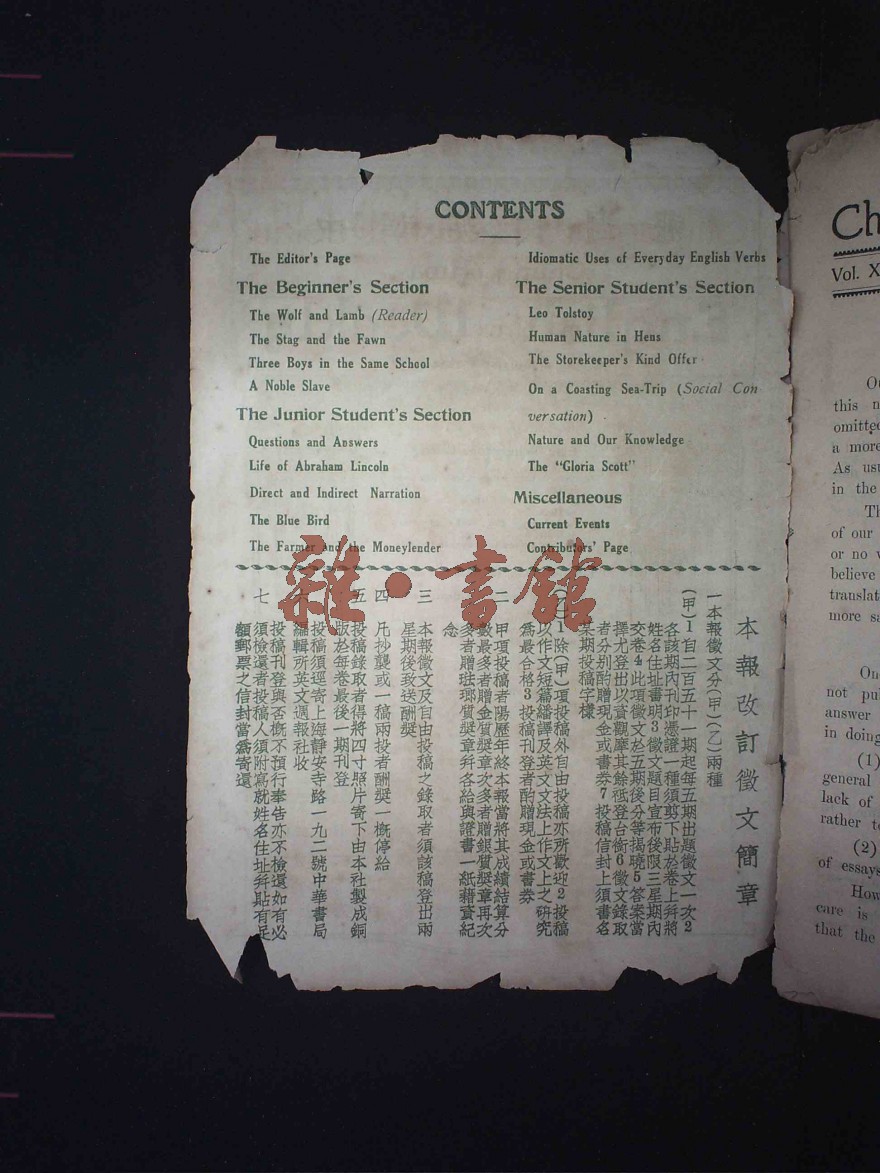 CONTENTS
The Editor's Page
The Beginner's Section
The Wolf and Lamb (Reader)
The Stag and the Fawn
Three Boys in the Same School
A Noble Slave
The Junior Student's Section
Questions and Answers
Life of Abraham Lincoln
Direct and Indirect Narration
The Blue Bird
The Farmer and the Moneylender
Idiomatic Uses of Everyday English Verbs
The Senior Student's Section
Leo Tolstoy
Human Nature in Hens
The Storekeeper's Kind Offer
On a Coasting Sea-Trip (Social Con
versation)
Nature and Our Knowledge
The "Gloria Scott"
Miscellaneous
Current Events
Contributors' Page
雜·書館
本報改訂徵文簡章
一本報徵文分(甲)(乙)兩種
(甲)1自二百五十一期起每五期出題徵文一次2
各該期內刊印憑證一種須剪下點於卷上幷將
姓名住址書明3徵文題目宣布後限三星期內
交卷4此項徵文於五期後分等揭曉5答案當
擇尤登出以資觀摩其餘祗登台銜6徵文錄取
者分別酌贈現金或書券7投稿信封上須書名
某期投稿字樣
(乙)1除(甲)項投稿外自由投稿亦所歡迎2投稿
以作文短篇繙譯及英文文法上作文上之研究
爲最合格3投稿刊登者酌贈現金或書券
二 甲項投稿者陽歷年終本報當將其成績結算分
數最多者贈金質獎章次多者贈銀質獎章再次
多者贈琺瑯質獎章幷各給與證書一紙藉資紀
念
三 本報徵文及自由投稿之錄取者須該稿登出兩
星期後致送酬獎
四 凡抄襲或一稿兩投者酬獎一槪停給
五 投稿錄取者得將四寸照片寄下由本社製成銅
版於每卷最後一期刊登
六 投稿須逕寄上海靜安寺路一九二號中華書局
編輯所英文週報社收
七 投稿刊登與否槪不預行奉告亦不檢還如有必
須檢還者投稿人須附寫就姓名住址幷點有足
額郵票之信封當爲寄還
Ch
Vol. X
this n
omitted
a more
As usu
in the
Th
of our
or no v
believe
translat
more sa
On
not pu
answer
in doing
(1)
general
lack of
rather to
(2)
of essays
How
care is
that the